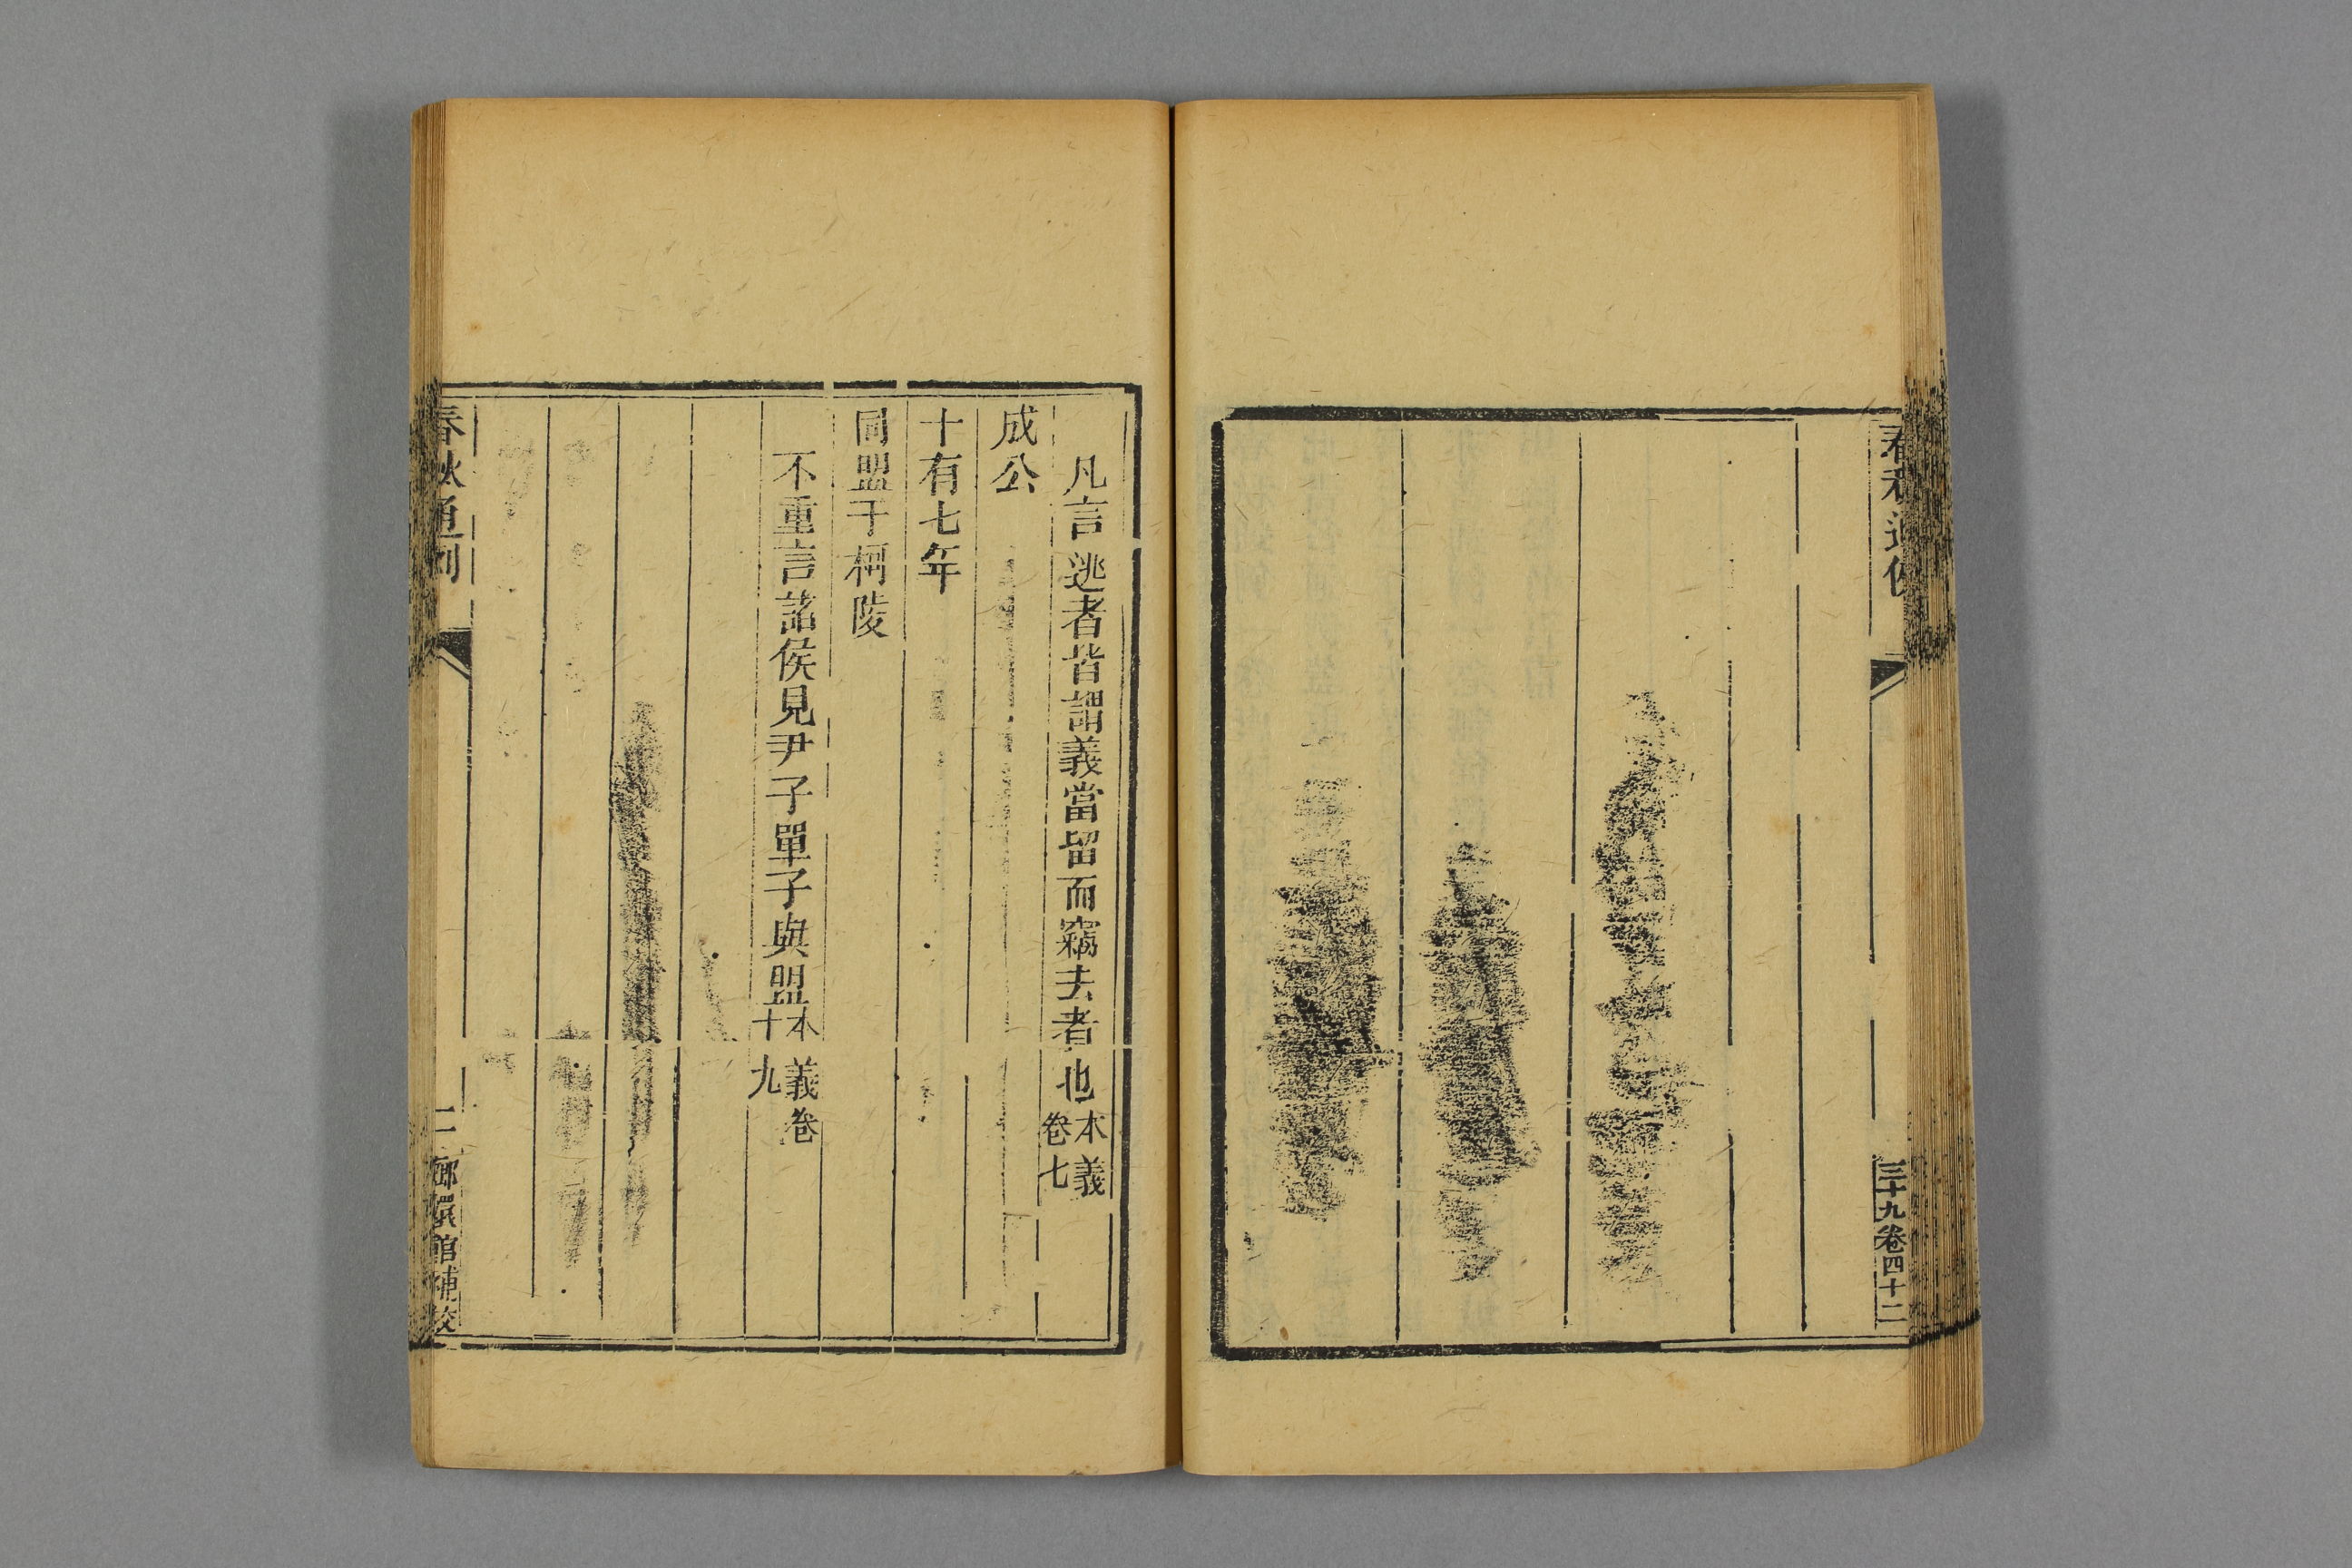 春秋通例
三十九卷四十二
凡言逃者皆謂義當留而竊去者也本義卷七
成公
十有七年
同盟于柯陵
不重言諸侯見尹子單子與盟本義卷十九
春秋通例
二
嫏嬛館補校